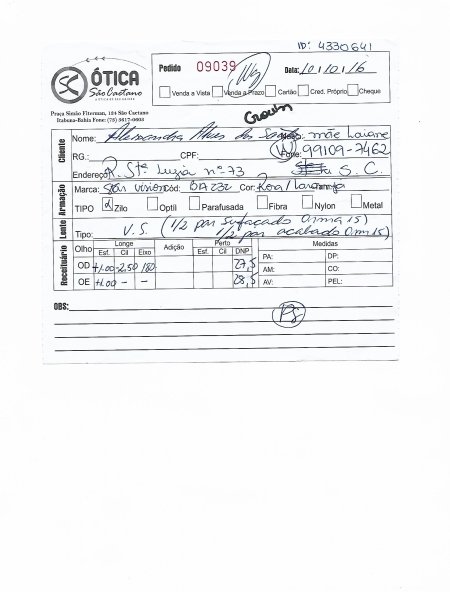 ID: 4330641
SC ÓTICA
São Caetano
Pedido 09039 Data: 10/01/16
Venda a Vista Venda a Prazo Cartão Créd. Próprio Cheque
Praça Simão Fiterman, 124 São Caetano
Itabuna-Bahia Fone: (73) 3617-0603
Cliente
Nome: Alexandra Alves dos mãe Laiane
RG.: CPF: Fone: 99109-7462
Endereço: R. Stª Luzia nº 73 S. C.
Armação
Marca: Star vision Cód: BA232 Cor: Rosa/Laranja
TIPO Zilo Optil Parafusada Fibra Nylon Metal
Lente
Tipo: V.S. (1/2 par sufaçado
1/2 par acabado
Receituário
Olho Longe Adição Perto DNP Medidas
Esf. Cil Eixo Esf. Cil
OD +1.00 -2,50 180 27,5 PA: DP:
AM: CO:
OE +1.00 - - 28,5 AV: PEL:
OBS: